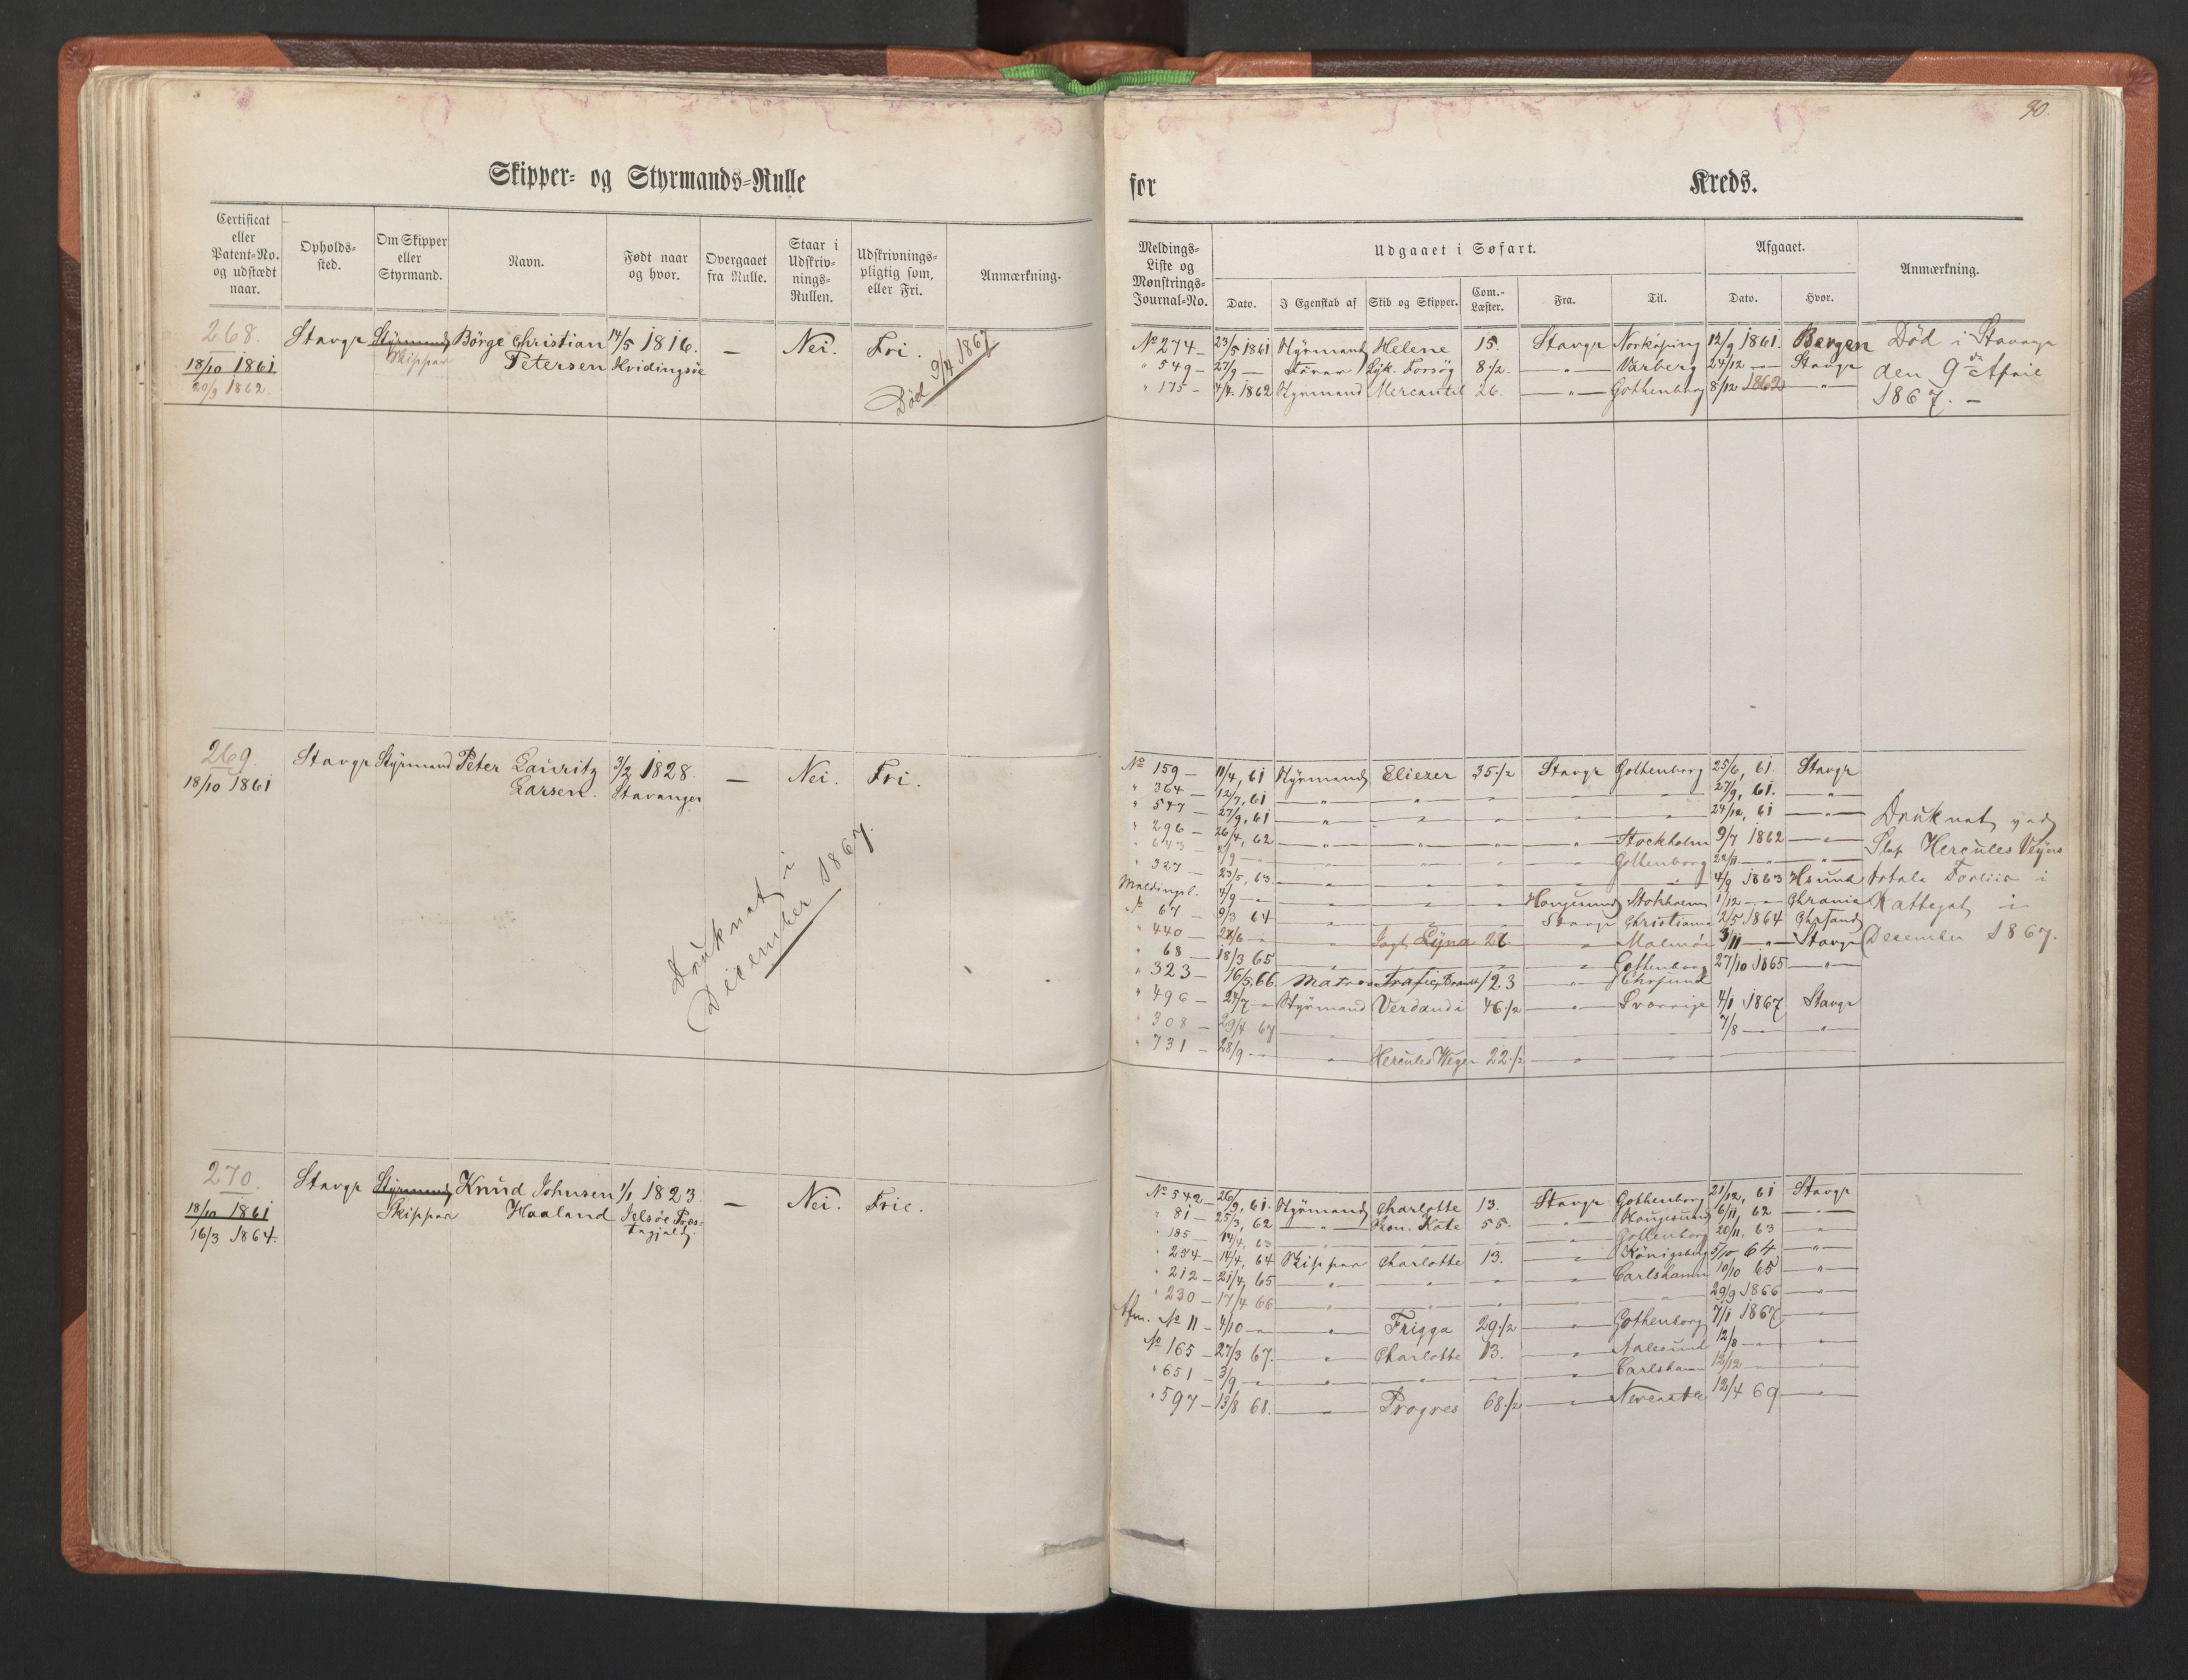 90.
Skipper- og Styrmands-Rulle
for Kreds.
Certificat eller Patent-No. og udstædt naar.
Opholds-sted.
Om Skipper eller Styrmand.
Navn.
Født naar og hvor.
Overgaaet fra Rulle.
Staar i Udskriv-nings-Rullen.
Udskrivnings-pligtig som, eller Fri.
Anmærkning.
Meldings-Liste og Mønstrings-Journal-No.
Udgaaet i Søfart.
Dato. I Egenskab af Skib og Skipper. Com.-Læster. Fra. Til.
Afgaaet.
Dato. Hvor.
Anmærkning.
268. Stavgr Styrmand Børge Christian 14/5 1816. — Nei. Fri.
18/10 1861 Skipper Petersen Hvidingsøe
20/9 1862.
Død 9/4 1867
No 274 — 23/5 1861 Styrmand Helene 15. Stavgr Norkøping 12/9 1861. Bergen
" 549 — 27/9 — Lyk. Forsøg 8 1/2. — " — Varberg 24/12 — Stavgr
" 175 — 4/4 1862 Styrmand Mercantil 26. — " — Gothenborg 8/12 1862 — " —
Død i Stavanger
den 9de April
1867. —
269. Stavgr Styrmand Peter Lauritz 3/2 1828. — Nei. Fri.
18/10 1861 Larsen. Stavanger
Druknet i
December 1867.
No 159 — 11/4, 61 Styrmand Eliezer 35 1/2 Stavgr Gothenborg 25/6, 61. Stavgr
" 364 — 12/7, 61 — " — 27/9, 61. — " —
" 547 — 27/9, 61 — " — 24/12, 61 — " —
" 296 — 26/4, 62 — " — Stockholm 9/7 1862 — " —
" 643 — /9 — Gothenborg 22/11 — " —
" 327 — 23/5, 63. — " — 4/9 1863 Hsund
Meldingsl. 4/9 — Haugesund Stokholm 1/12 — Chrania
No 67 — 9/3 64 — " — Stavgr Christiania 2/5 1864 Chrsand
" 440 — 28/6 — " — Jagt Lyna 26 — " — Malmøe 3/11 — " — Stavgr
" 68 — 18/3 65 — " — Gothenborg 27/10 1865 — " —
" 323 — 16/5 66 Matros Trafiq 123 — " — Chrsund
" 496 — 24/7 — Styrmand Verdandi 46 1/2 — " — Sverrige 4/1 1867 Stavgr
" 308 — 29/4 67 — 7/8 — " —
" 731 — 28/9 — " — Hercules Weyer 22 1/2 — " —
Druknet ved
Slup Hercules Veyers
totale Forliis i
Kattegat i
December 1867.
270. Stavgr Styrmand Knud Johnsen 1/1 1823. — Nei. Frie.
18/10 1861 Skipper Haaland Jelsøe Præs-
16/3 1864. tegjæld.
No 542 — 26/9, 61. Styrmand Charlotte 13. Stavgr Gothenborg 21/12, 61 Stavgr
" 81 — 25/3, 62 — " — Kate 55. — " — Haugesund 6/11, 62 — " —
" 185 — 14/4, 63 — " — Gothenborg 20/11, 63 — " —
" 254 — 14/4, 64 Skipper Charlotte 13. — " — Königsberg 5/10 64 — " —
" 212 — 21/4, 65 — " — Carlshamn 10/10 65 — " —
" 230 — 17/4 66 — " — 29/9 1866 — " —
No 11 — 4/10 — " — Frigga 29 1/2 — " — Gothenborg 7/1 1867 — " —
No 165 — 27/3 67. — " — Charlotte 13. — " — Aalesund 12/8 — " —
" 651 — 3/9 — " — Carlshamn 12/12 — " —
" 597 — 13/8 68. — " — Progres 68 1/2 — " — Newcastle 12/4 69 — " —